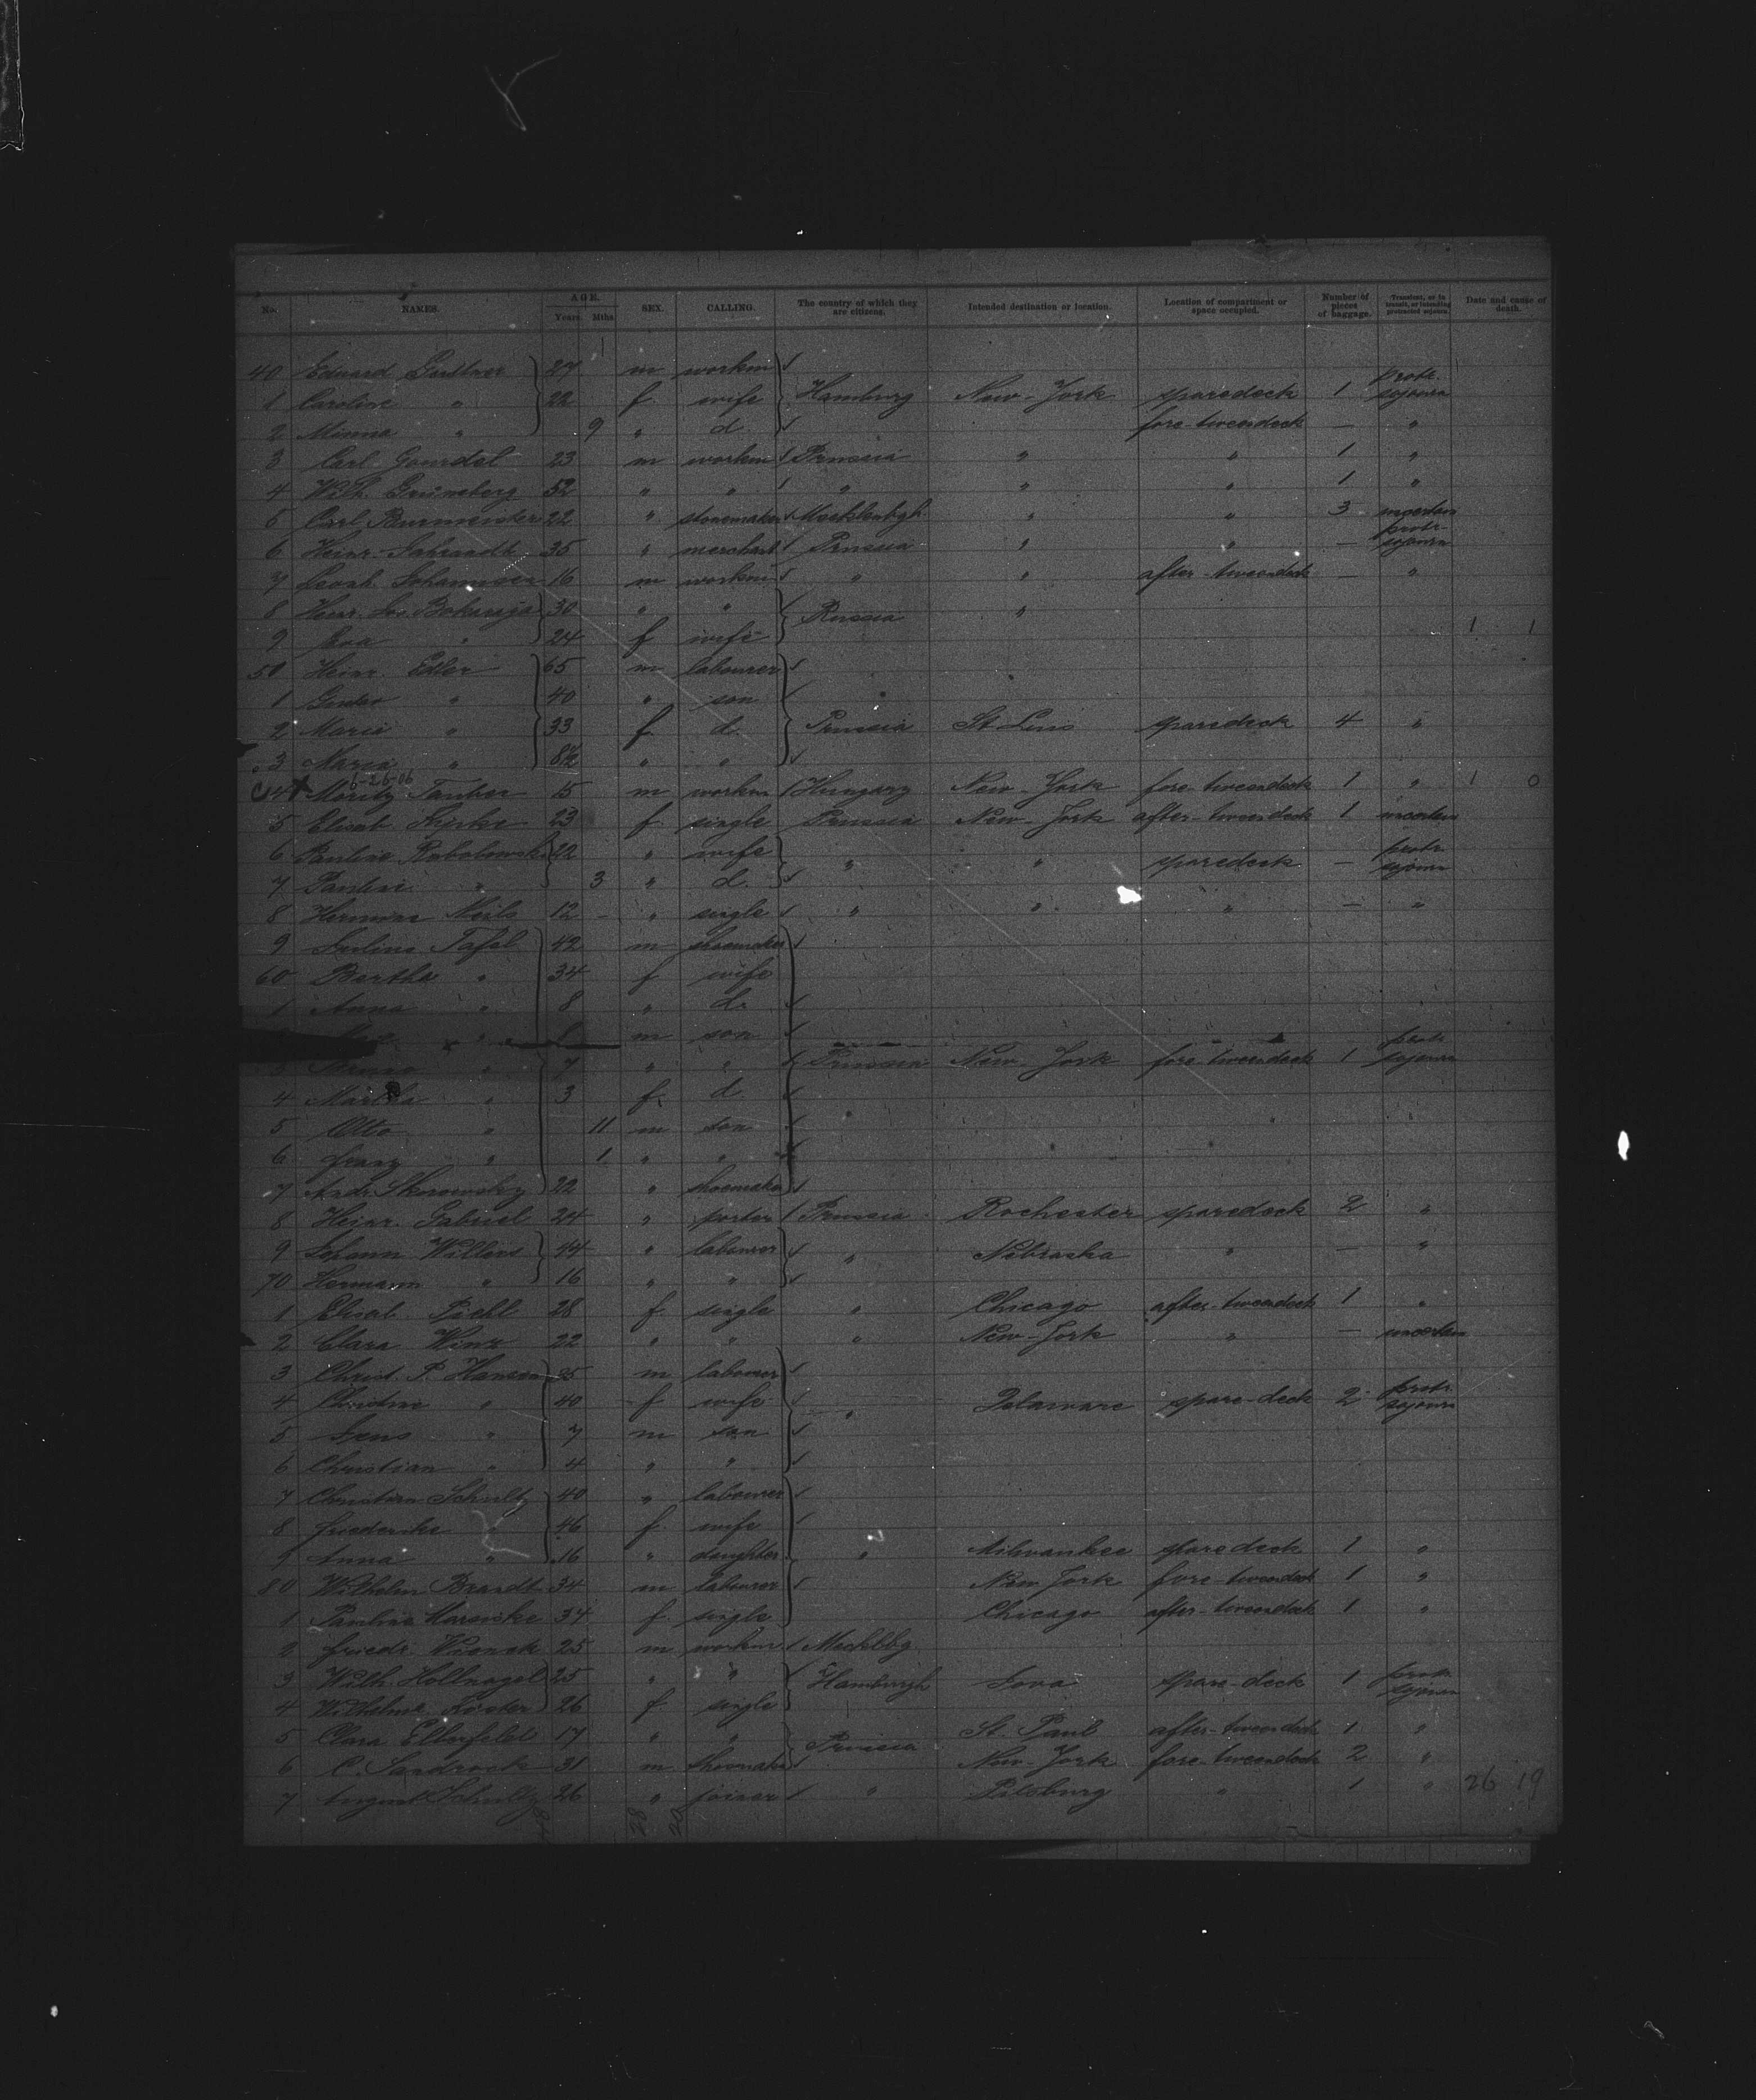 No. NAMES. AGE. Years. Mths. SEX. CALLING. The country of which they are citizens. Intended destination or location. Location of compartment or space occupied. Number of pieces of baggage. Transient, or in transit, or intending protracted sojourn. Date and cause of death.
40 Eduard 27 m workm
1 Caroline " 22 f wife Hamburg New-York sparedeck 1 protr. sojourn
2 Minna " 9 " d. fore-tweendeck — "
3 Carl 23 m workm Prussia " " 1 "
4 Wilh. Grüneberg 52 " " " " " 1 "
5 Carl Burmeister 22 " Mecklenbgh " " 3 uncertain
6 Heinr. 35 " merchant Prussia " " — protr. sojourn
7 16 m workm " " after-tweendeck — "
8 30 " " Russia "
9 Eva " 24 f wife 1 1
50 Heinr. Edler 65 m labourer
1 Gustav " 40 " son
2 Maria " 33 f d. Prussia St. Luis sparedeck 4 "
3 Maria " 8½ " "
6-26-06
4 Moritz Tauber 15 m workm Hungary New-York fore-tweendeck 1 " 1 0
5 Elisab. 23 f single Prussia New-York after-tweendeck 1 uncertain
6 Pauline 22 " wife " " sparedeck — protr. sojourn
7 Pauline " 3 " d.
8 12 " single " " " — "
9 Tafel 42 m shoemaker
60 Bertha " 34 f wife
1 Anna " 8 " d.
" m son
" 7 " " Prussia New-York fore-tweendeck 1 protr. sojourn
4 Martha " 3 f d.
5 Otto " 11 m son
6 Franz " 1 " "
7 Andr. 22 " shoemaker
8 Heinr. Gabriel 24 " porter Prussia Rochester sparedeck 2 "
9 Johann Willers 44 " labourer " Nebraska " — "
70 Hermann " 16 " "
1 Elisab. Piehl 28 f single " Chicago after-tweendeck 1 "
2 Clara 22 " " " New-York " — uncertain
3 Christ. P. Hansen 35 m labourer
4 Christine " 40 f wife " Delaware spare-deck 2 protr. sojourn
5 Jens " 7 m son
6 Christian " 4 " "
7 Christian Schultz 40 " labourer
8 Friederike " 46 f wife
9 Anna " 16 " daughter " Milwaukee sparedeck 1 "
80 Wilhelm Brandt 34 m labourer New York fore-tweendeck 1 "
1 Pauline 34 f single Chicago after-tweendeck 1 "
2 Friedr. 25 m workm Mecklbg.
3 Wilh. Hollnagel 25 " " Hamburgh Iova spare-deck 1 protr. sojourn
4 Wilhelmine Köster 26 f single
5 Clara Elberfeld 17 " " Prussia St. Paul after-tweendeck 1 "
6 C. Sandrock 31 m shoemaker New-York fore-tweendeck 2 "
7 August Schultz 26 " joiner " Pitsburg " 1 " 26 19